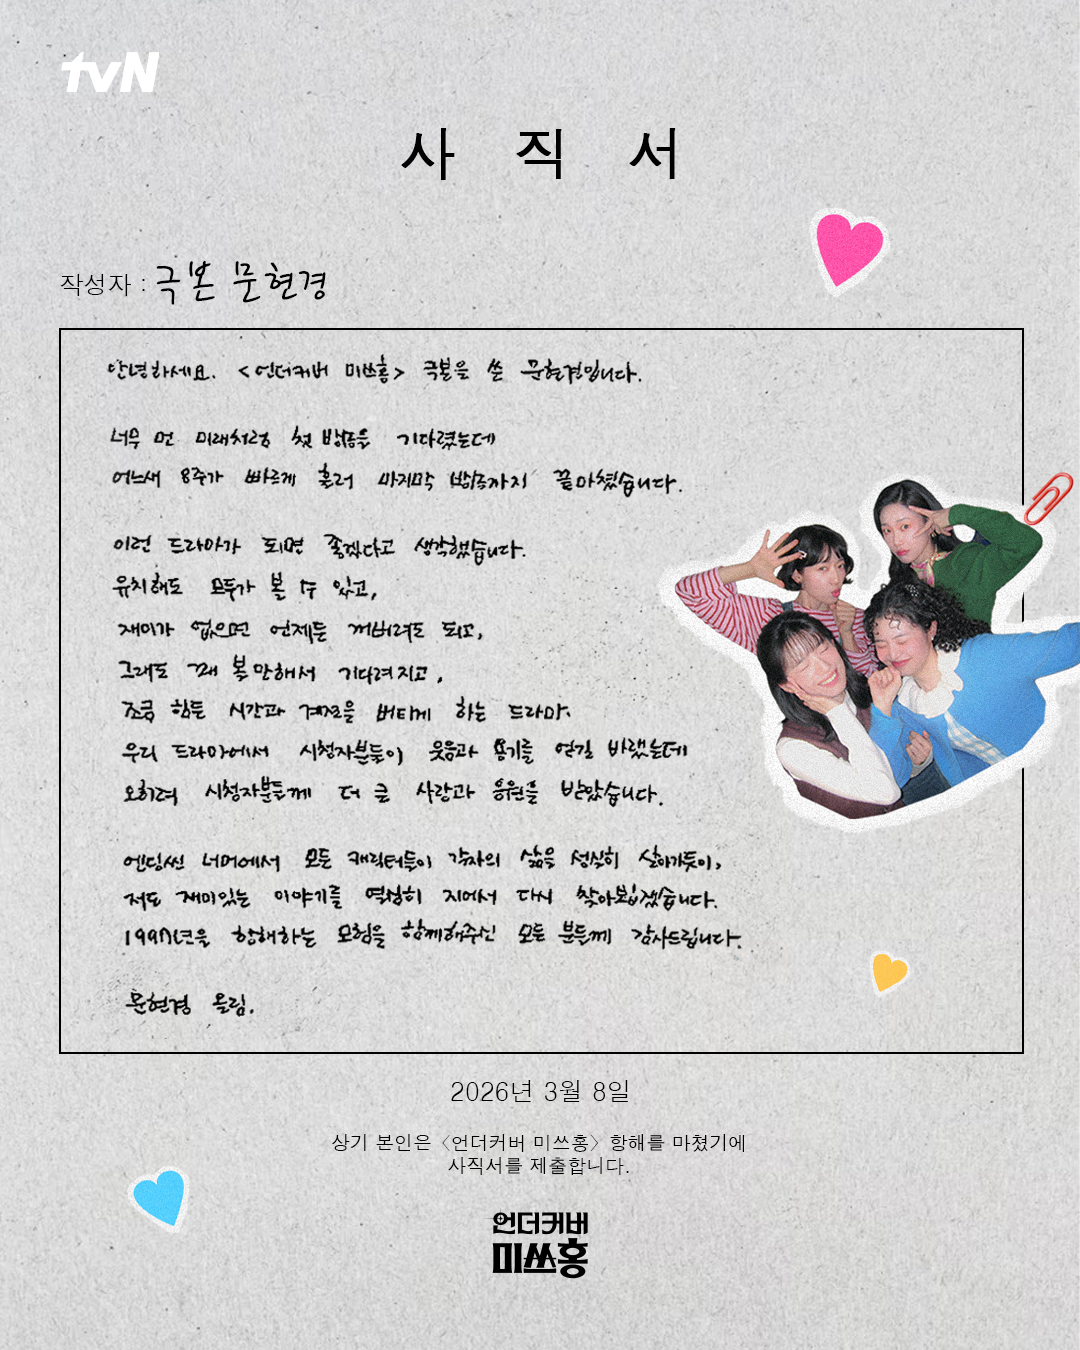 tvN
사 직 서
작성자 : 극본 문현경
안녕하세요. <언더커버 미쓰홍> 극본을 쓴 문현경입니다.
너무 먼 미래처럼 첫 방송을 기다렸는데
어느새 8주가 빠르게 흘러 마지막 방송까지 끝마쳤습니다.
이런 드라마가 되면 좋겠다고 생각했습니다.
유치해도 모두가 볼 수 있고,
재미가 없으면 언제든 꺼버려도 되고,
그래도 꽤 볼만해서 기다려지고,
조금 힘든 시간과 계절을 버티게 하는 드라마.
우리 드라마에서 시청자분들이 웃음과 용기를 얻길 바랬는데
오히려 시청자분들께 더 큰 사랑과 응원을 받았습니다.
엔딩씬 너머에서 모든 캐릭터들이 각자의 삶을 성실히 살아가듯이,
저도 재미있는 이야기를 열심히 지어서 다시 찾아뵙겠습니다.
1997년을 항해하는 모험을 함께해주신 모든 분들께 감사드립니다.
문현경 올림.
2026년 3월 8일
상기 본인은 <언더커버 미쓰홍> 항해를 마쳤기에
사직서를 제출합니다.
언더커버
미쓰홍